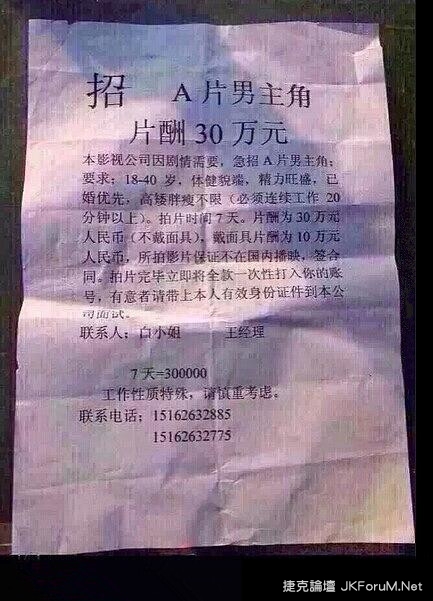 招 A片男主角
片酬30万元
本影视公司因剧情需要，急招A片男主角；
要求；18-40岁，体健貌端，精力旺盛，已
婚优先，高矮胖瘦不限（必须连续工作20
分钟以上）。拍片时间7天。片酬为30万元
人民币（不戴面具），戴面具片酬为10万元
人民币，所拍影片保证不在国内播映，签合
同。拍片完毕立即将全款一次性打入你的账
号，有意者请带上本人有效身份证件到本公
司面试。
联系人；白小姐 王经理
7天=300000
工作性质特殊，请慎重考虑。
联系电话；15162632885
15162632775
捷克論壇 JKForuM.Net